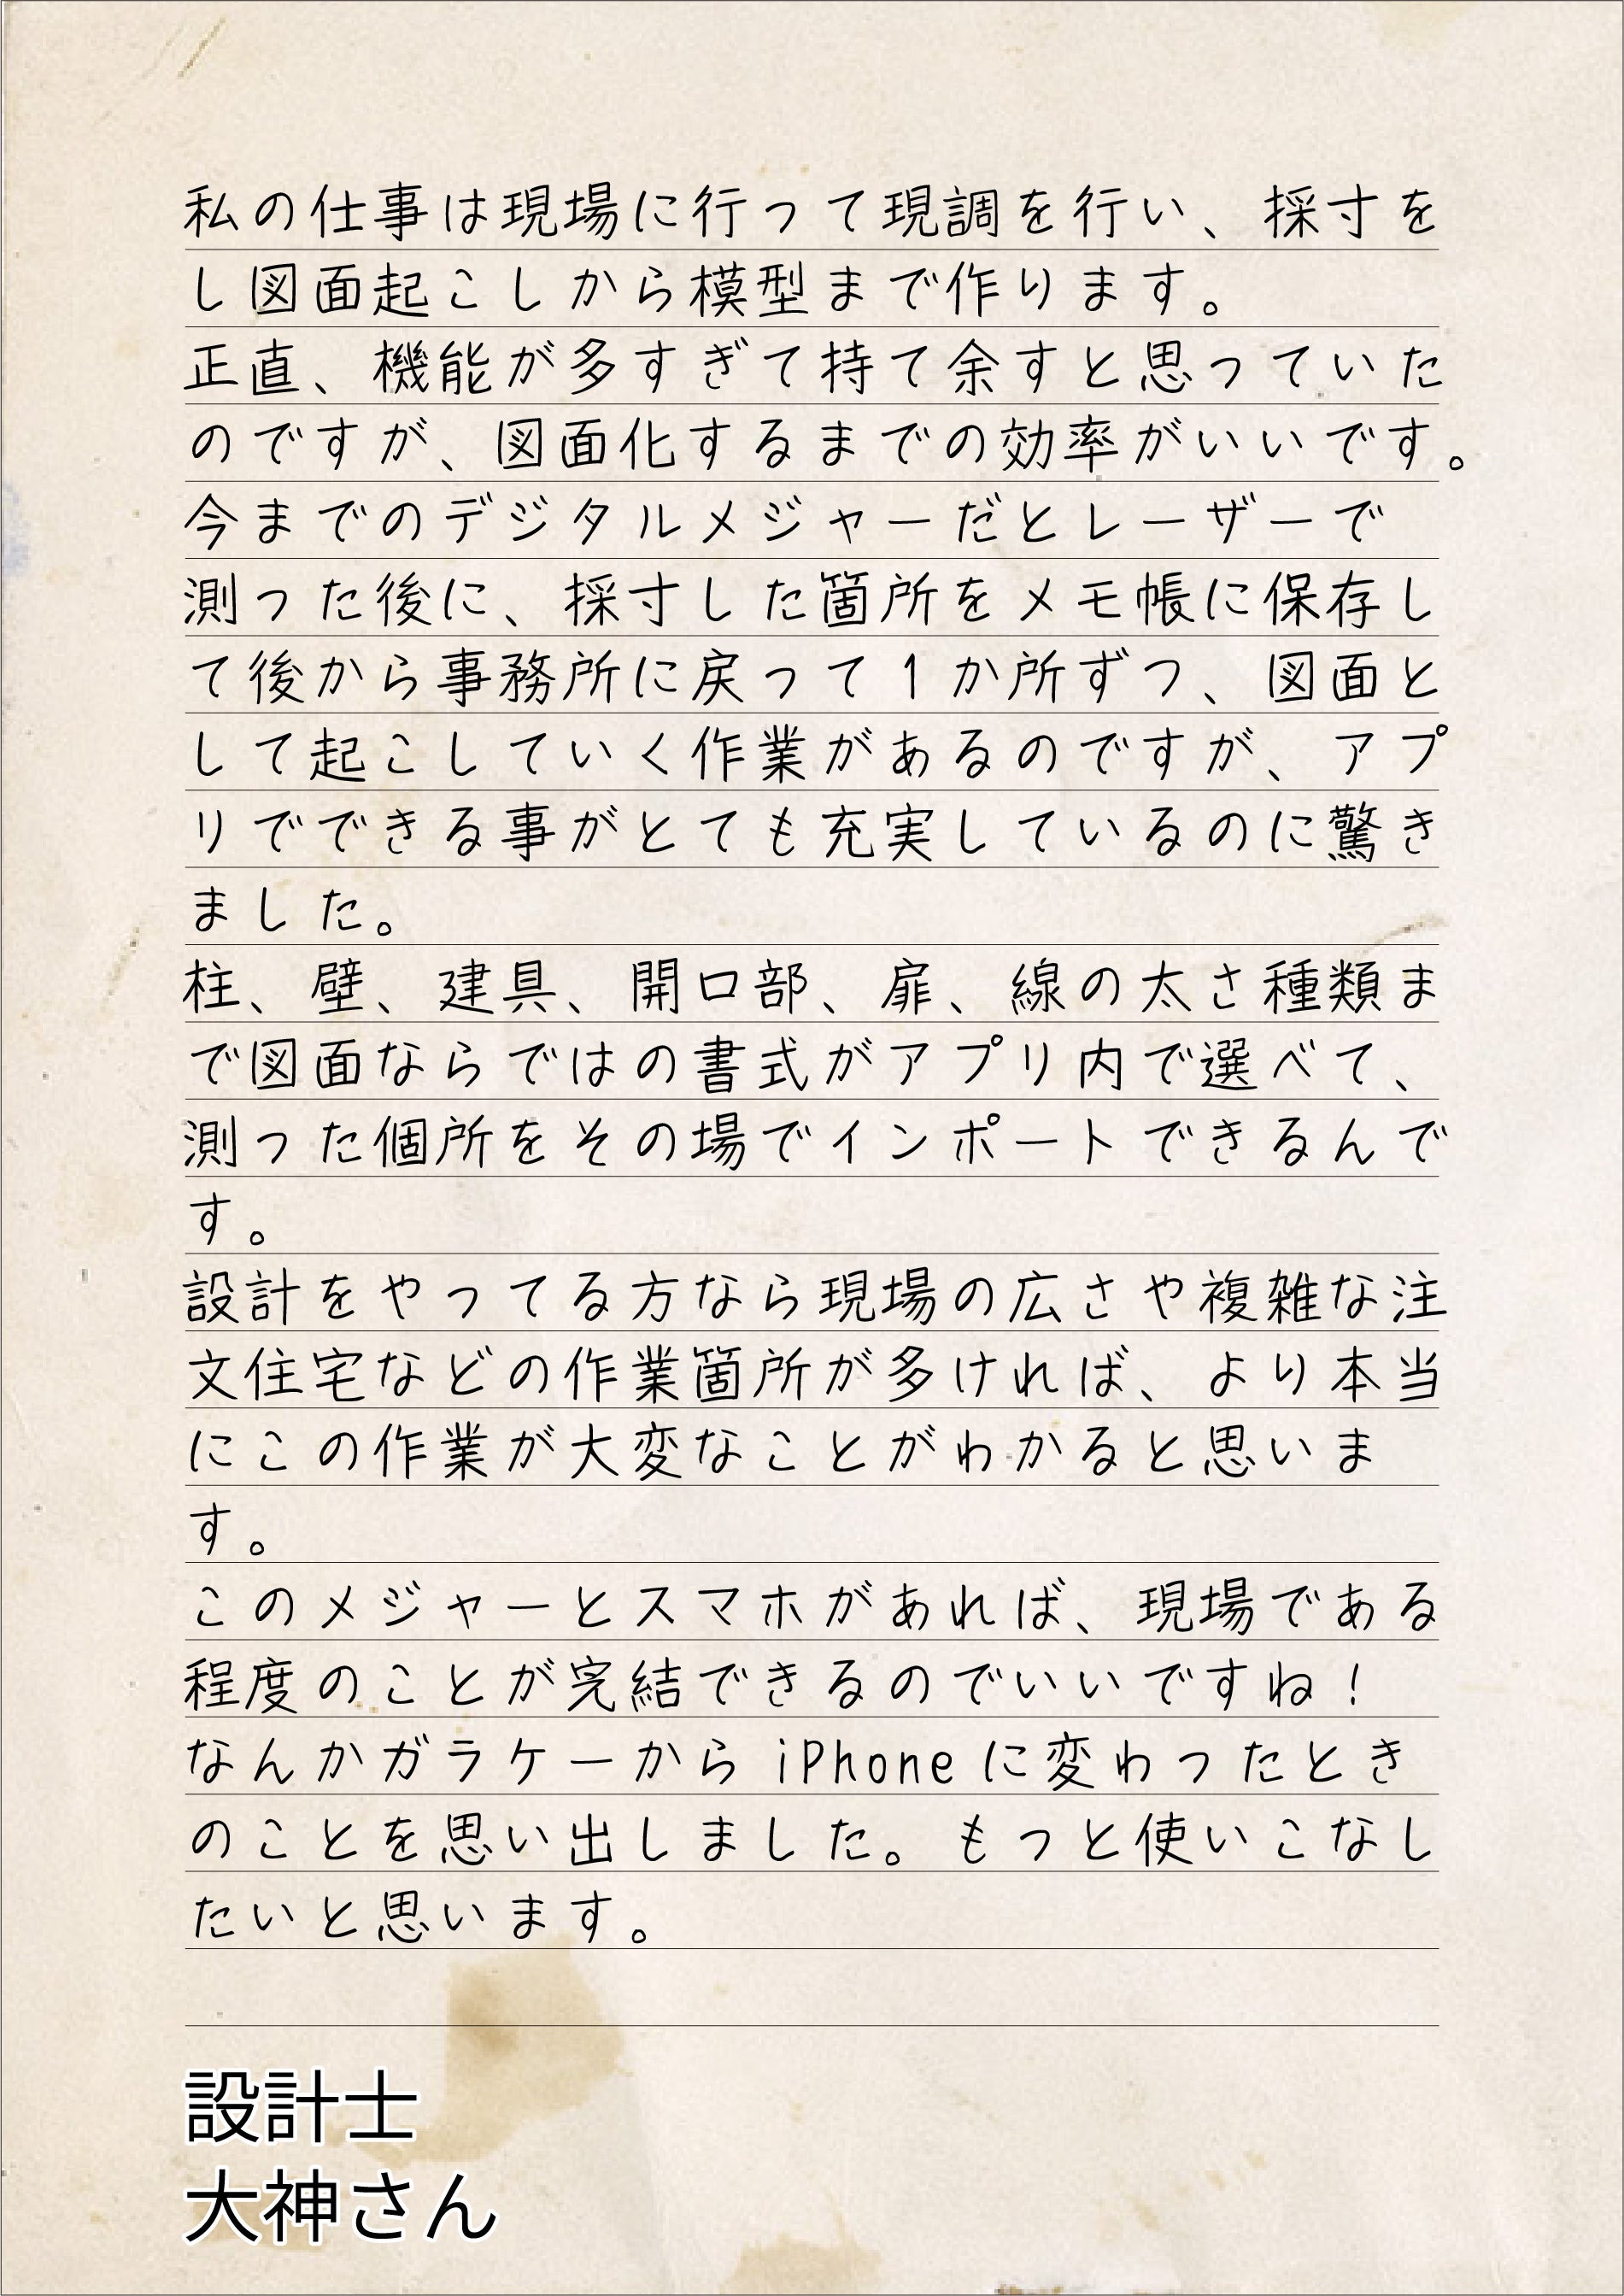 私の仕事は現場に行って現調を行い、採寸を
し図面起こしから模型まで作ります。
正直、機能が多すぎて持て余すと思っていた
のですが、図面化するまでの効率がいいです。
今までのデジタルメジャーだとレーザーで
測った後に、採寸した箇所をメモ帳に保存し
て後から事務所に戻って1か所ずつ、図面と
して起こしていく作業があるのですが、アプ
リでできる事がとても充実しているのに驚き
ました。
柱、壁、建具、開口部、扉、線の太さ種類ま
で図面ならではの書式がアプリ内で選べて、
測った個所をその場でインポートできるんで
す。
設計をやってる方なら現場の広さや複雑な注
文住宅などの作業箇所が多ければ、より本当
にこの作業が大変なことがわかると思いま
す。
このメジャーとスマホがあれば、現場である
程度のことが完結できるのでいいですね！
なんかガラケーからiPhoneに変わったとき
のことを思い出しました。もっと使いこなし
たいと思います。
設計士
大神さん